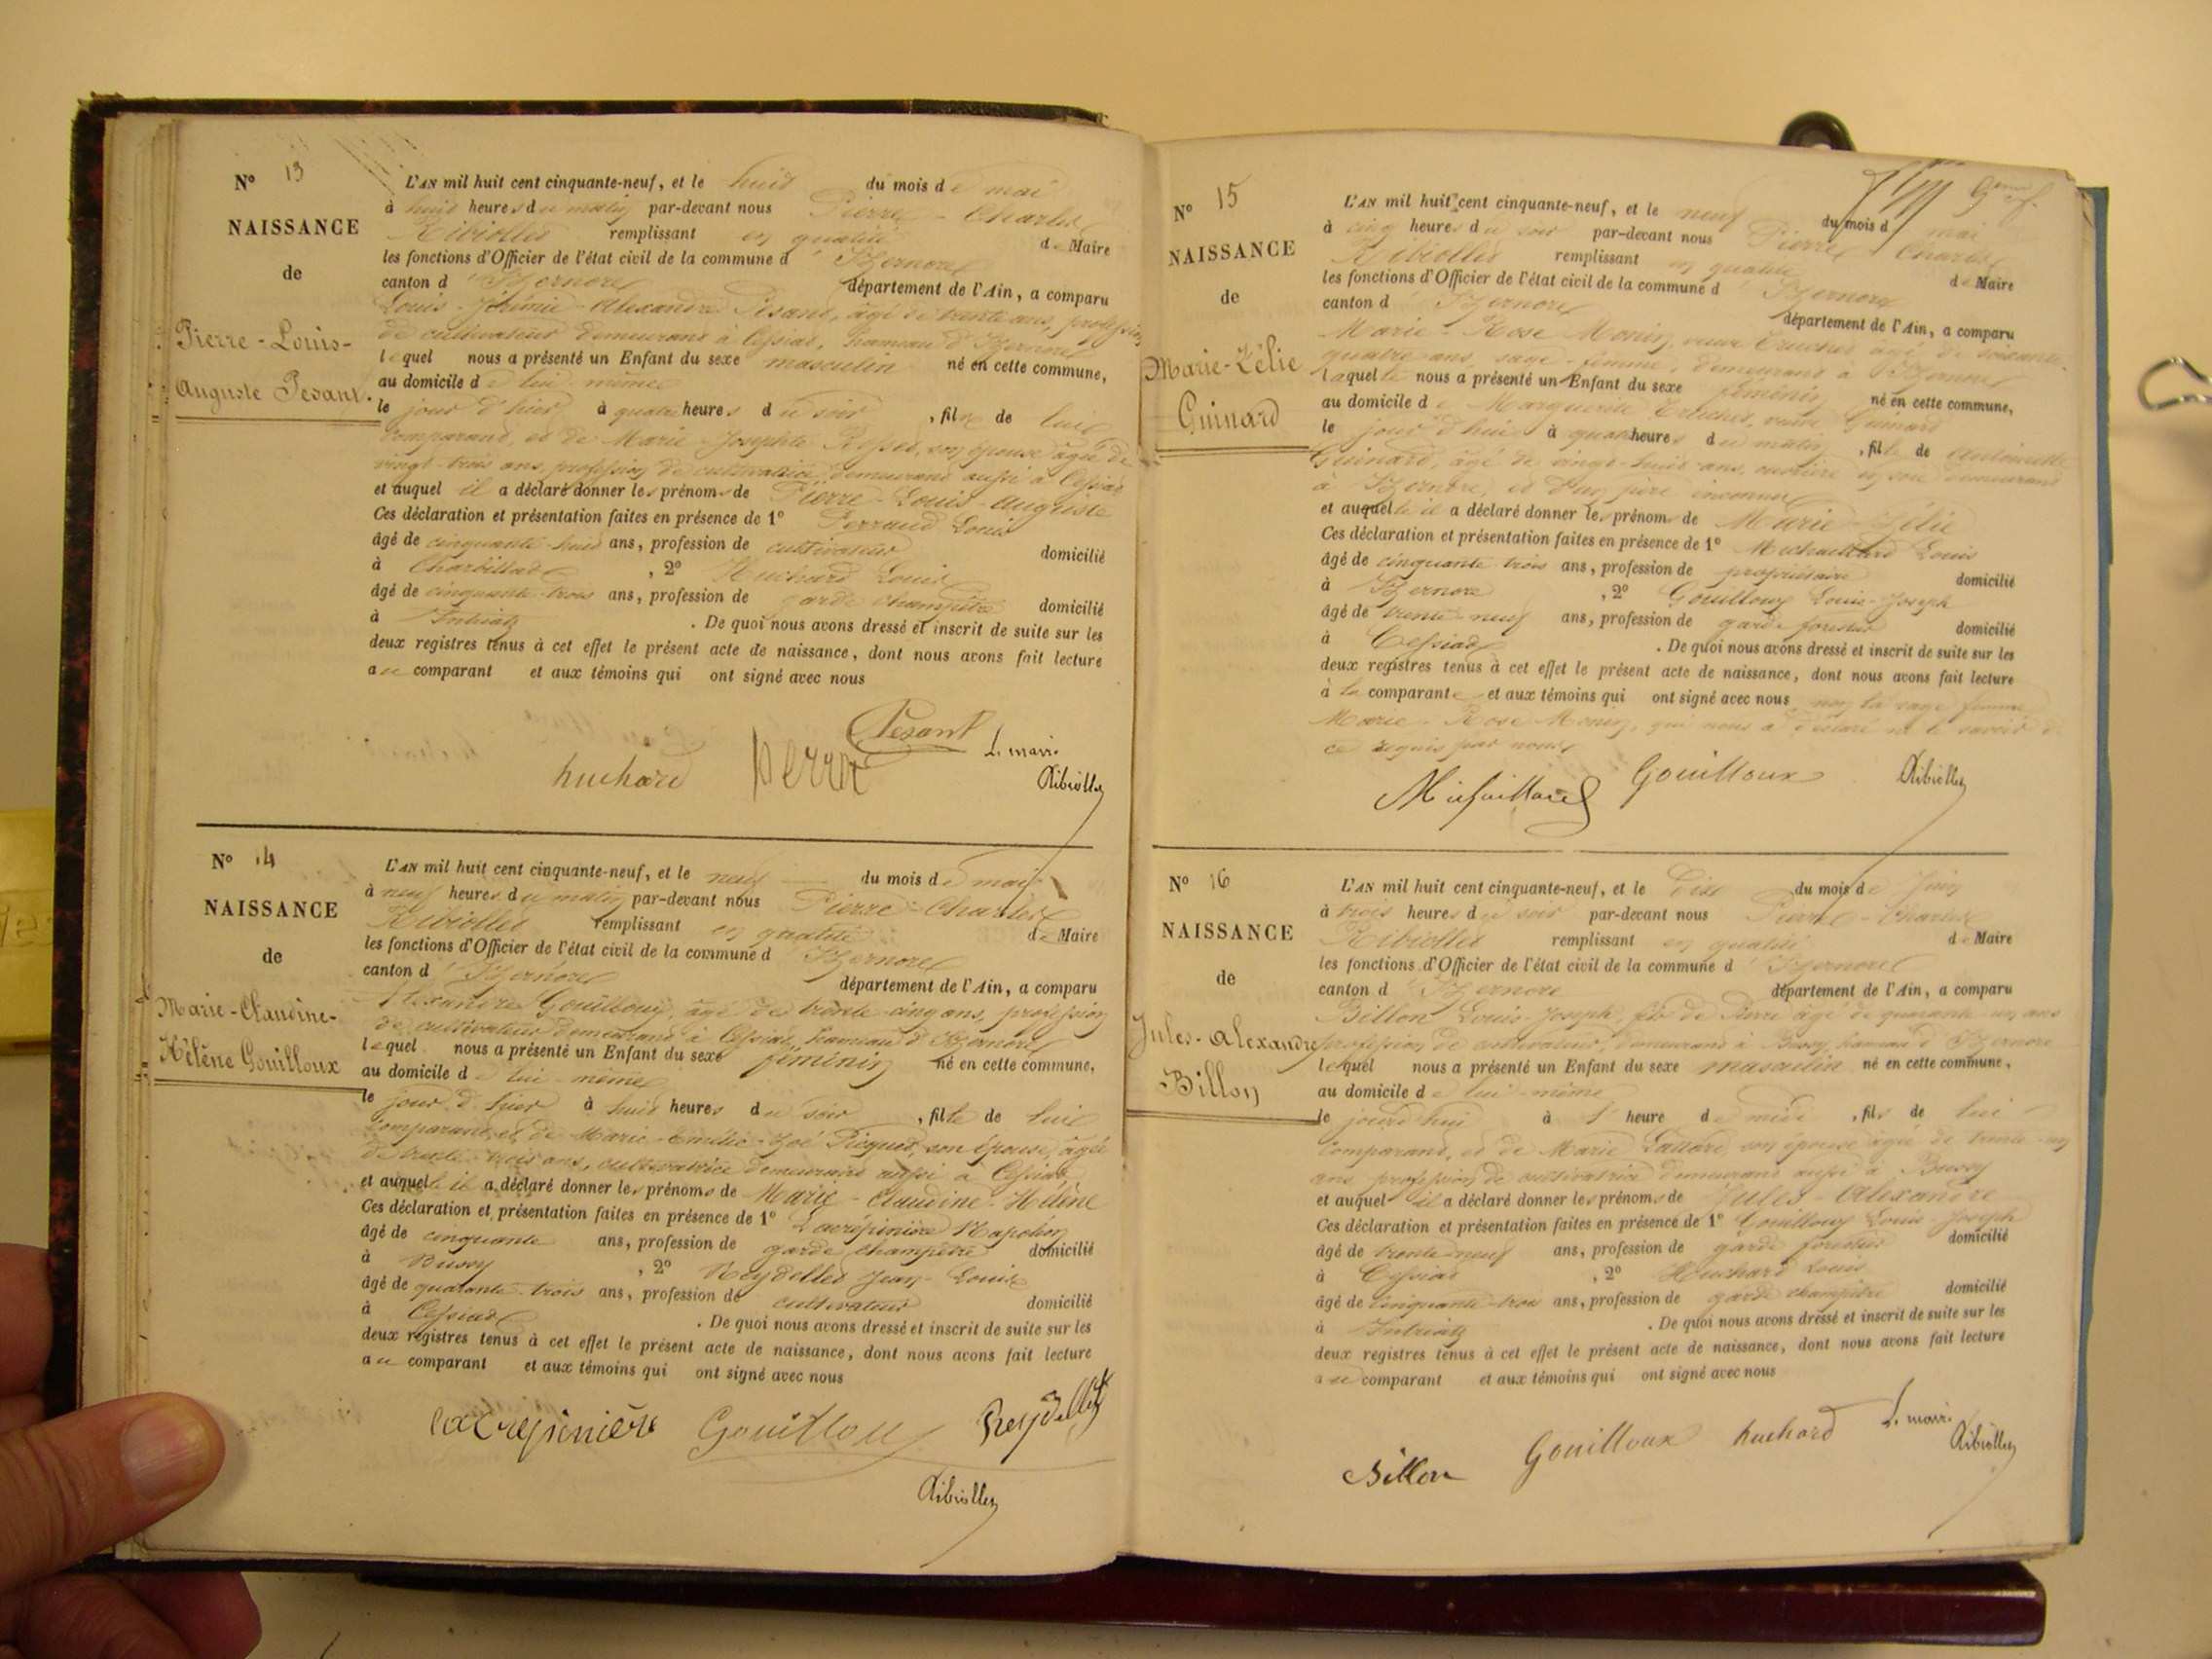 N° 13
NAISSANCE
de
Pierre-Louis-
Auguste Pesant.
L'AN mil huit cent cinquante-neuf, et le huit du mois de mai
à huit heures du matin par-devant nous Pierre-Charles
Ribiollet remplissant en qualité de Maire
les fonctions d'Officier de l'état civil de la commune d'Izernore
canton d'Izernore département de l'Ain, a comparu
Louis-Jérémie-Alexandre Pesant, âgé de trente ans, profession
de cultivateur demeurant à Cessiat, hameau d'Izernore
lequel nous a présenté un Enfant du sexe masculin né en cette commune,
au domicile de lui-même
le jour d'hier à quatre heures du soir, fils de lui
comparant, et de Marie-Josephte son épouse âgée de
vingt-trois ans, profession de cultivatrice demeurant aussi à Cessiat
et auquel il a déclaré donner les prénoms de Pierre-Louis-Auguste
Ces déclaration et présentation faites en présence de 1° Perraud Louis
âgé de cinquante-huit ans, profession de cultivateur domicilié
à Charbillat, 2° Huchard Louis
âgé de cinquante-trois ans, profession de garde champêtre domicilié
à Intriat. De quoi nous avons dressé et inscrit de suite sur les
deux registres tenus à cet effet le présent acte de naissance, dont nous avons fait lecture
au comparant et aux témoins qui ont signé avec nous
Pesant
huchard Le maire
Ribiollet
N° 14
NAISSANCE
de
Marie-Claudine-
Hélène Gouilloux
L'AN mil huit cent cinquante-neuf, et le neuf du mois de mai
à neuf heures du matin par-devant nous Pierre-Charles
Ribiollet remplissant en qualité de Maire
les fonctions d'Officier de l'état civil de la commune d'Izernore
canton d'Izernore département de l'Ain, a comparu
Alexandre Gouilloux, âgé de trente-cinq ans, profession
de cultivateur demeurant à Cessiat, hameau d'Izernore
lequel nous a présenté un Enfant du sexe féminin né en cette commune,
au domicile de lui-même
le jour d'hier à huit heures du soir, fille de lui
comparant, et de Marie-Emélie-Zoé Picquet, son épouse, âgée
de trente-trois ans, cultivatrice demeurant aussi à Cessiat
et auquelle il a déclaré donner les prénoms de Marie-Claudine-Hélène
Ces déclaration et présentation faites en présence de 1° Lacrépinière Napoléon
âgé de cinquante ans, profession de garde champêtre domicilié
à Bussy, 2° Reydellet Jean-Louis
âgé de quarante-trois ans, profession de cultivateur domicilié
à Cessiat. De quoi nous avons dressé et inscrit de suite sur les
deux registres tenus à cet effet le présent acte de naissance, dont nous avons fait lecture
au comparant et aux témoins qui ont signé avec nous
Lacrepinière Gouilloux Reydellet
Ribiollet
N° 15
NAISSANCE
de
Marie-Zélie
Guinard
L'AN mil huit cent cinquante-neuf, et le neuf du mois d mai
à cinq heures du soir par-devant nous Pierre Charles
Ribiollet remplissant en qualité de Maire
les fonctions d'Officier de l'état civil de la commune d'Izernore
canton d'Izernore département de l'Ain, a comparu
Marie-Rose Monin, veuve âgé de soixante
quatre ans, sage-femme, demeurant à Izernore
laquelle nous a présenté un Enfant du sexe féminin né en cette commune,
au domicile de Marguerite veuve Guinard
le jour d'hui à quatre heures du matin, fille de Antoinette
Guinard, âgé de vingt-huit ans, ouvrière en soie demeurant
à Izernore, et d'un père inconnu
et auquelle il a déclaré donner les prénoms de Marie-Zélie
Ces déclaration et présentation faites en présence de 1° Michaillard Louis
âgé de cinquante trois ans, profession de propriétaire domicilié
à Izernore, 2° Gouilloux Louis-Joseph
âgé de trente neuf ans, profession de garde forestier domicilié
à Cessiat. De quoi nous avons dressé et inscrit de suite sur les
deux registres tenus à cet effet le présent acte de naissance, dont nous avons fait lecture
à la comparante et aux témoins qui ont signé avec nous non la sage femme
Marie-Rose Monin, qui nous a déclaré ne le savoir de
ce requis par nous
Michaillard Gouilloux Ribiollet
N° 16
NAISSANCE
de
Jules-Alexandre
Billon
L'AN mil huit cent cinquante-neuf, et le Dix du mois de Juin
à trois heures du soir par-devant nous Pierre-Charles
Ribiollet remplissant en qualité de Maire
les fonctions d'Officier de l'état civil de la commune d'Izernore
canton d'Izernore département de l'Ain, a comparu
Billon Louis-Joseph fils de Pierre âgé de quarante-un ans
profession de cultivateur, demeurant à Bussy hameau d'Izernore
lequel nous a présenté un Enfant du sexe masculin né en cette commune,
au domicile de lui-même
le jourd'hui à 1 heure de midi, fils de lui
comparant, et de Marie son épouse âgée de trente-un
ans profession de cultivatrice demeurant aussi à Bussy
et auquel il a déclaré donner les prénoms de Jules-Alexandre
Ces déclaration et présentation faites en présence de 1° Gouilloux Louis Joseph
âgé de trente-neuf ans, profession de garde forestier domicilié
à Cessiat, 2° Huchard Louis
âgé de cinquante-trois ans, profession de garde champêtre domicilié
à Intriat. De quoi nous avons dressé et inscrit de suite sur les
deux registres tenus à cet effet le présent acte de naissance, dont nous avons fait lecture
au comparant et aux témoins qui ont signé avec nous
Billon Gouilloux huchard Le maire
Ribiollet